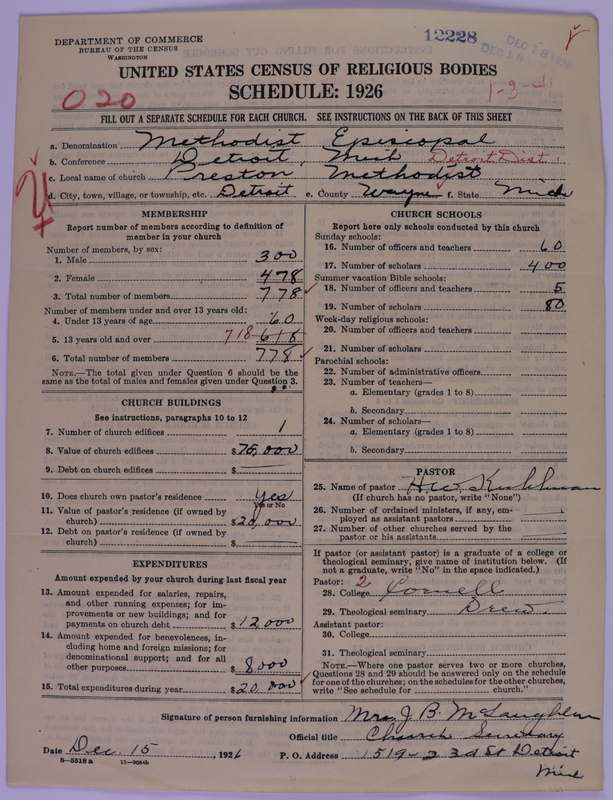 12228
DEC 18 1926
DEC 18
DEPARTMENT OF COMMERCE
BUREAU OF THE CENSUS
WASHINGTON
UNITED STATES CENSUS OF RELIGIOUS BODIES
SCHEDULE: 1926
020
1-3-
FILL OUT A SEPARATE SCHEDULE FOR EACH CHURCH. SEE INSTRUCTIONS ON THE BACK OF THIS SHEET
a. Denomination Methodist Episcopal
b. Conference Detroit, Mich Detroit Dist.
c. Local name of church Preston Methodist
d. City, town, village, or township, etc. Detroit e. County Wayne f. State Mich
MEMBERSHIP
Report number of members according to definition of
member in your church
Number of members, by sex:
1. Male 300
2. Female 478
3. Total number of members 778
Number of members under and over 13 years old:
4. Under 13 years of age 60
5. 13 years old and over 718 618
6. Total number of members 778
NOTE.—The total given under Question 6 should be the
same as the total of males and females given under Question 3.
CHURCH BUILDINGS
See instructions, paragraphs 10 to 12
7. Number of church edifices 1
8. Value of church edifices $75,000
9. Debt on church edifices $
10. Does church own pastor's residence Yes
Yes or No
11. Value of pastor's residence (if owned by
church) $20,000
12. Debt on pastor's residence (if owned by
church) $
EXPENDITURES
Amount expended by your church during last fiscal year
13. Amount expended for salaries, repairs,
and other running expenses; for im-
provements or new buildings; and for
payments on church debt $12,000
14. Amount expended for benevolences, in-
cluding home and foreign missions; for
denominational support; and for all
other purposes $8000
15. Total expenditures during year $20,000
CHURCH SCHOOLS
Report here only schools conducted by this church
Sunday schools:
16. Number of officers and teachers 60
17. Number of scholars 400
Summer vacation Bible schools:
18. Number of officers and teachers 5
19. Number of scholars 80
Week-day religious schools:
20. Number of officers and teachers
21. Number of scholars
Parochial schools:
22. Number of administrative officers
23. Number of teachers—
a. Elementary (grades 1 to 8)
b. Secondary
24. Number of scholars—
a. Elementary (grades 1 to 8)
b. Secondary
PASTOR
25. Name of pastor H.W. Kuhlman
(If church has no pastor, write "None")
26. Number of ordained ministers, if any, em-
ployed as assistant pastors
27. Number of other churches served by the
pastor or his assistants
If pastor (or assistant pastor) is a graduate of a college or
theological seminary, give name of institution below. (If
not a graduate, write "No" in the space indicated.)
Pastor: 2
28. College Cornell
29. Theological seminary Drew.
Assistant pastor:
30. College
31. Theological seminary
NOTE.—Where one pastor serves two or more churches,
Questions 28 and 29 should be answered only on the schedule
for one of the churches; on the schedules for the other churches,
write "See schedule for church."
Signature of person furnishing information Mrs. J B. McLaughlin
Official title Church Secretary
Date Dec. 15, 1926 P. O. Address 1519-23d St Detroit
Mich
8-5518 a 11-9054b